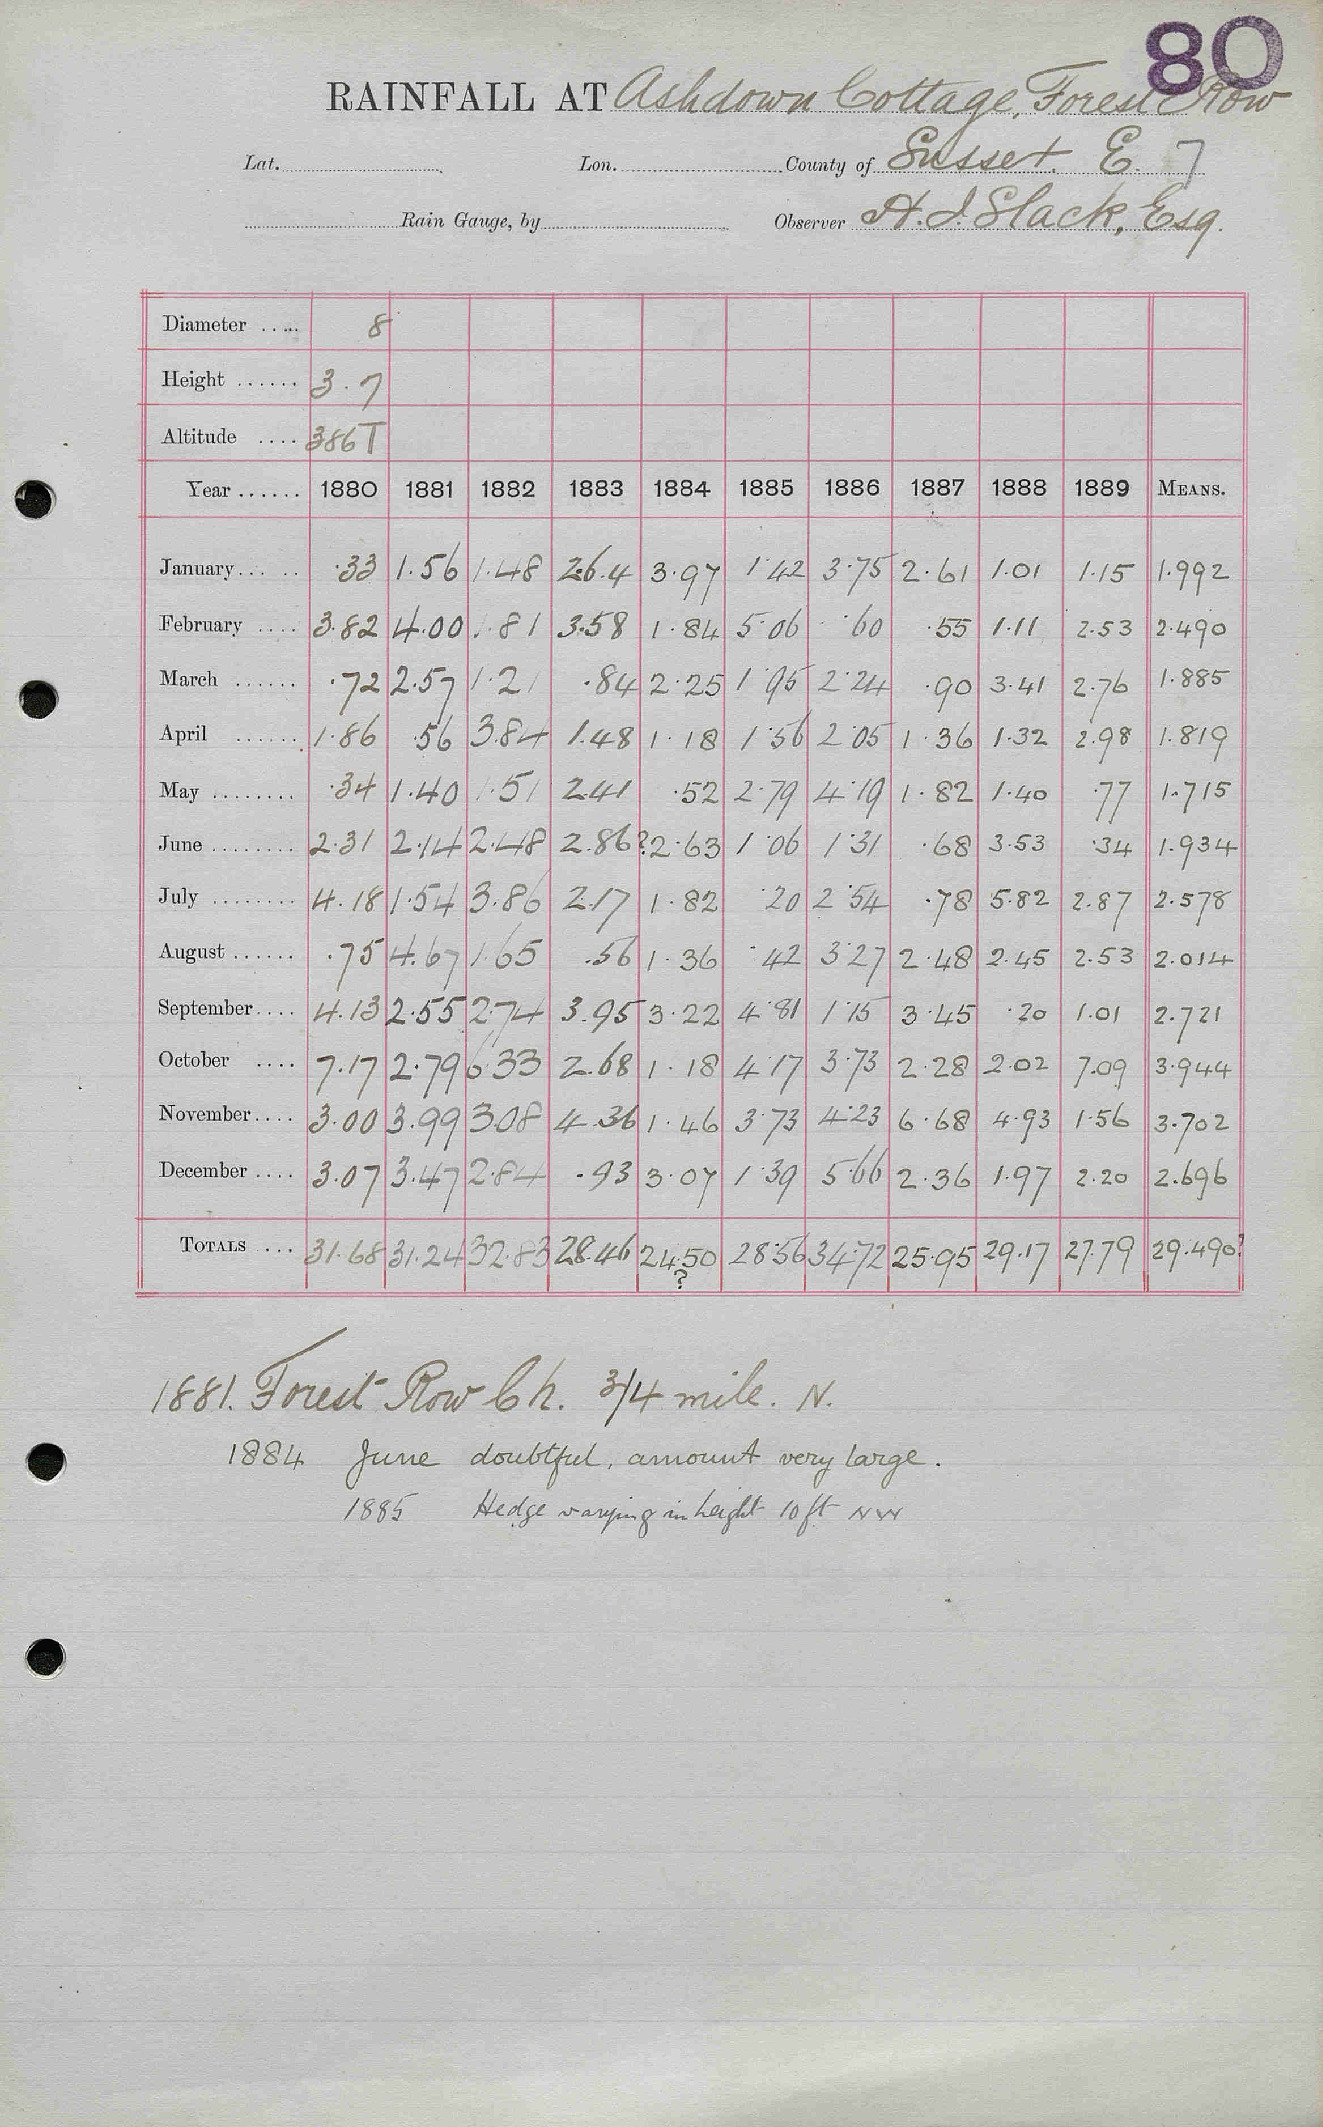 80
RAINFALL AT Ashdown Cottage, Forest Row
Lat. Lon. County of Sussex. E. 7
Rain Gauge, by Observer H. J. Slack, Esq.
Diameter ..... 8
Height ...... 3.7
Altitude .... 386T
Year ...... 1880 1881 1882 1883 1884 1885 1886 1887 1888 1889 MEANS.
January... .. .33 1.56 1.48 26.4 3.97 1.42 3.75 2.61 1.01 1.15 1.992
February .... 3.82 4.00 1.81 3.58 1.84 5.06 .60 .55 1.11 2.53 2.490
March ...... .72 2.57 1.21 .84 2.25 1.95 2.24 .90 3.41 2.76 1.885
April ...... 1.86 .56 3.84 1.48 1.18 1.56 2.05 1.36 1.32 2.98 1.819
May ........ .34 1.40 1.51 2.41 .52 2.79 4.19 1.82 1.40 .77 1.715
June ........ 2.31 2.14 2.48 2.86 ?2.63 1.06 1.31 .68 3.53 .34 1.934
July ........ 4.18 1.54 3.86 2.17 1.82 .20 2.54 .78 5.82 2.87 2.578
August ...... .75 4.67 1.65 .56 1.36 .42 3.27 2.48 2.45 2.53 2.014
September.... 4.13 2.55 2.74 3.95 3.22 4.81 1.15 3.45 .20 1.01 2.721
October .... 7.17 2.79 6.33 2.68 1.18 4.17 3.73 2.28 2.02 7.09 3.944
November.... 3.00 3.99 3.08 4.36 1.46 3.73 4.23 6.68 4.93 1.56 3.702
December .... 3.07 3.47 2.84 .93 3.07 1.39 5.66 2.36 1.97 2.20 2.696
TOTALS ... 31.68 31.24 32.83 28.46 24.50 28.56 34.72 25.95 29.17 27.79 29.490?
?
1881. Forest Row Ch. 3/4 mile. N.
1884 June doubtful, amount very large.
1885 Hedge varying in height 10 ft NW